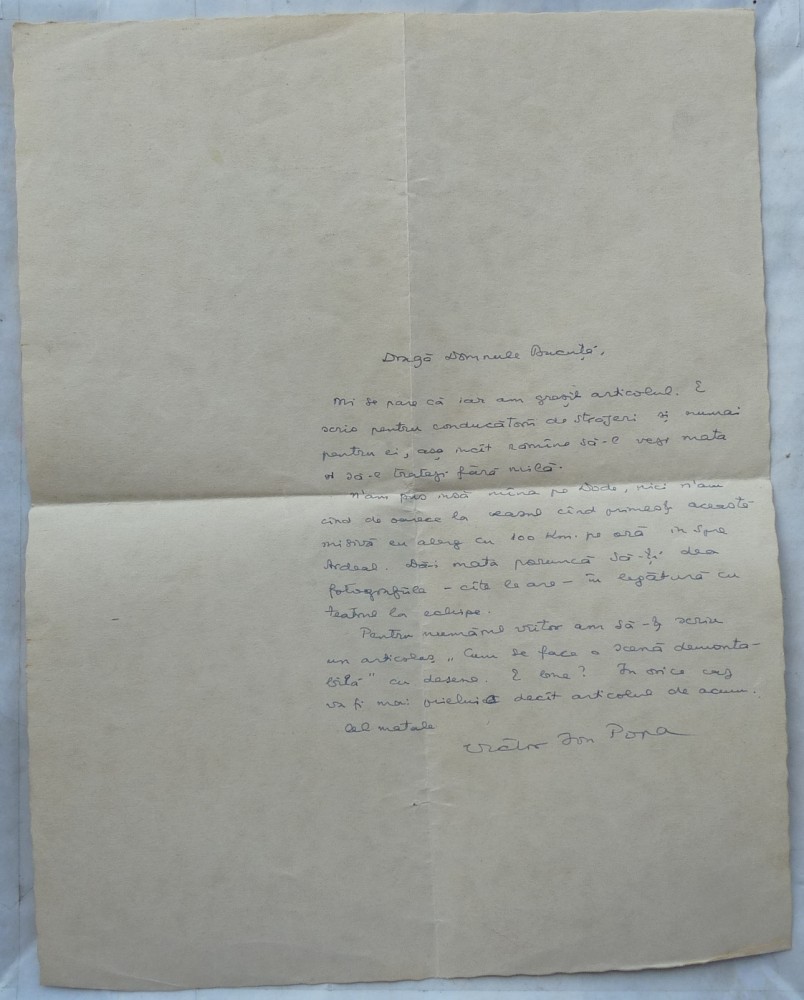 Dragă Domnule Bucuță,
Mi se pare că iar am greșit articolul. E
scris pentru conducătorii de străjeri și numai
pentru ei, așa incît rămîne să-l vezi mata
și să-l tratezi fără milă.
N'am pus însă mîna pe Dodo, nici n'am
cînd de oarece la ceasul cînd primești această
misivă eu alerg cu 100 Km. pe oră in spre
Ardeal. Dă-i mata poruncă să-ți dea
fotografiile – cîte le are – în legătură cu
teatrul la echipe.
Pentru numărul viitor am să-ți scriu
un articolaș „Cum se face o scenă demonta-
bilă" cu desene. E bine? In orice caz
va fi mai decît articolul de acum.
al matale
Victor Ion Popa